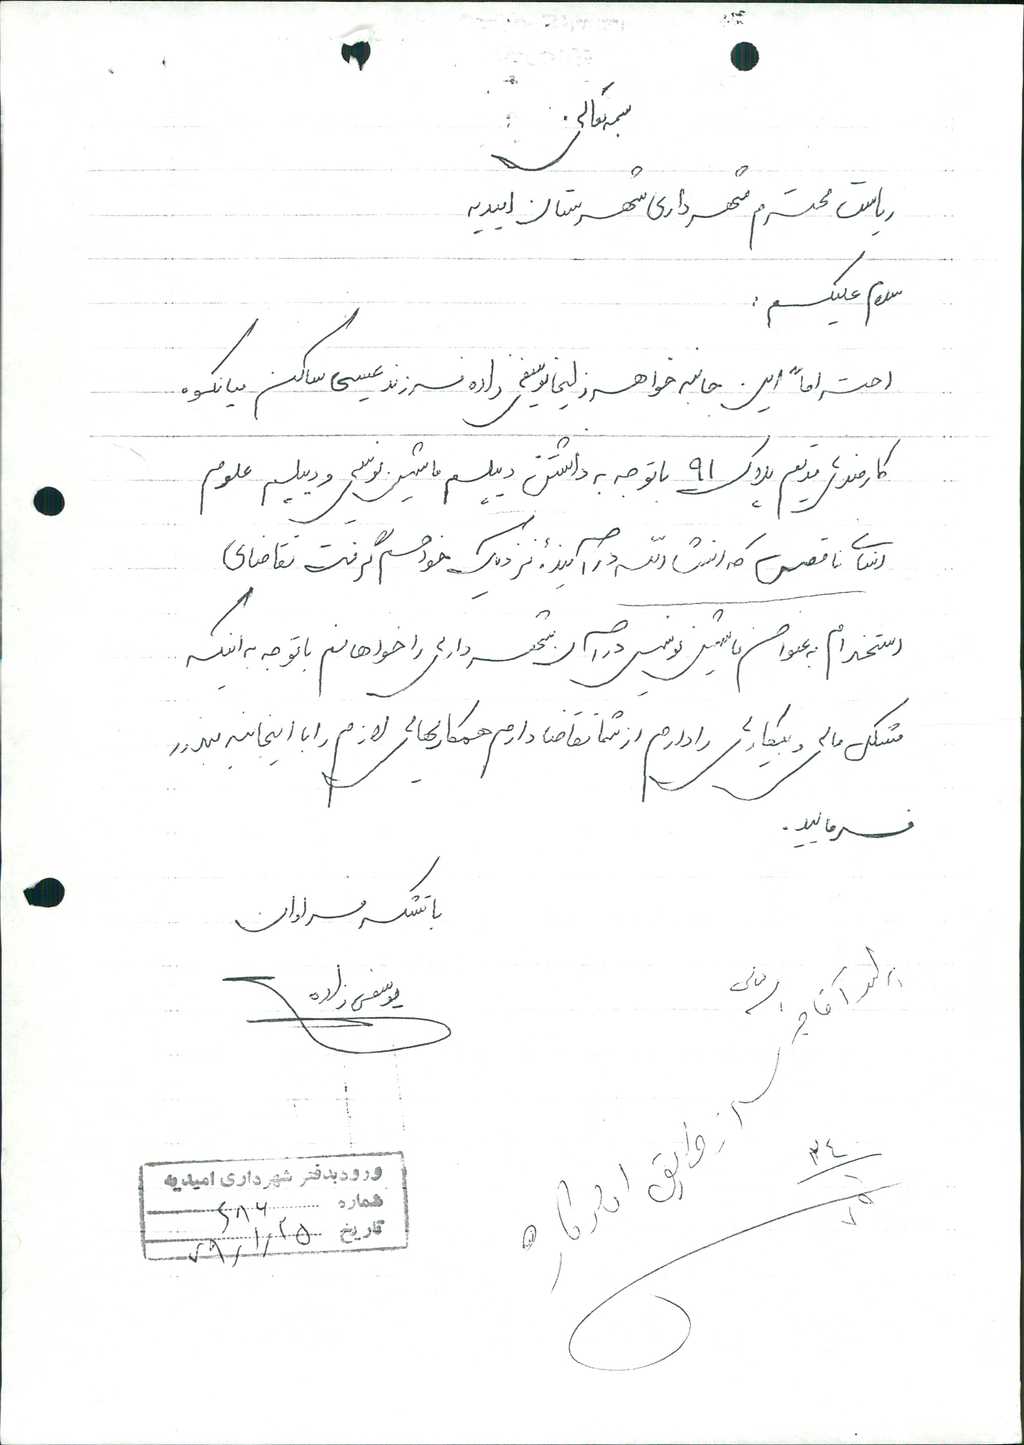 بسمه تعالی
ریاست محترم شهرداری شهرستان امیدیه
سلام علیکم :
احتراماً این جانبه خواهر زلیخا یوسفی زاده فرزند عیسی ساکن میانکوه
کارمندی قدیم پلاک ۹۱ با توجه به داشتن دیپلم ماشین نویسی و دیپلم علوم
انسانی ناقص که انشاءالله در آینده نزدیک خواهم گرفت تقاضای
استخدام به عنوان ماشین نویس در آن شهرداری را خواهانم با توجه به اینکه
مشکل مالی و بیکاری را دارم از شما تقاضا دارم همکاریهای لازم را با اینجانبه مبذول
فرمایید.
با تشکر فراوان
یوسفی زاده
از طریق اداره کار
۲۴
ورود بدفتر شهرداری امیدیه
شماره ۶۸۶
تاریخ ۷۹/۱/۲۵